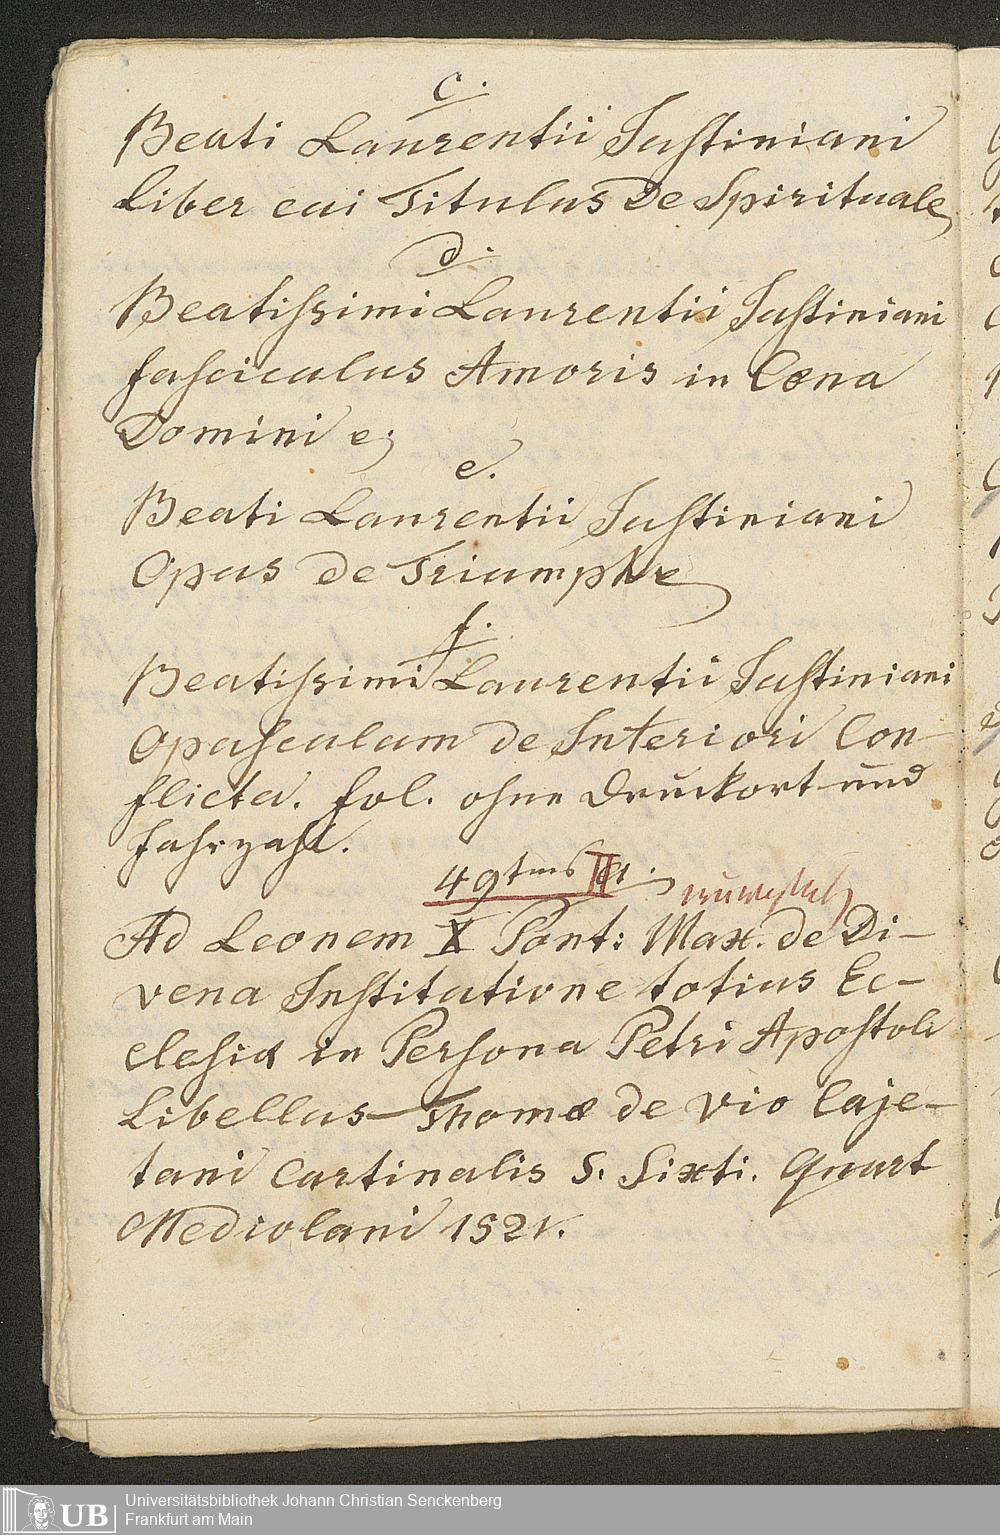 c.
Beati Laurentii Justiniani
Liber cui Titulus De Spirituale
d.
Beatissimi Laurentii Justiniani
fasciculus Amoris in Cœna
Domini e;
e.
Beati Laurentii Justiniani
Opus de Triumphre
f.
Beatissimi Laurentii Justiniani
Opusculum de Interiori Con-
flictu. fol. ohne Druckort und
Jahrzahl.
49tens a.
II
Ad Leonem X Pont: Max. de Di-
vena Institutione totius Ec-
clesiæ in Persona Petri Apostoli
Libellus Thomæ de Vio Caje-
tani Cartinalis S. Sixti. Quart
Mediolani 1521.
UB
Universitätsbibliothek Johann Christian Senckenberg
Frankfurt am Main